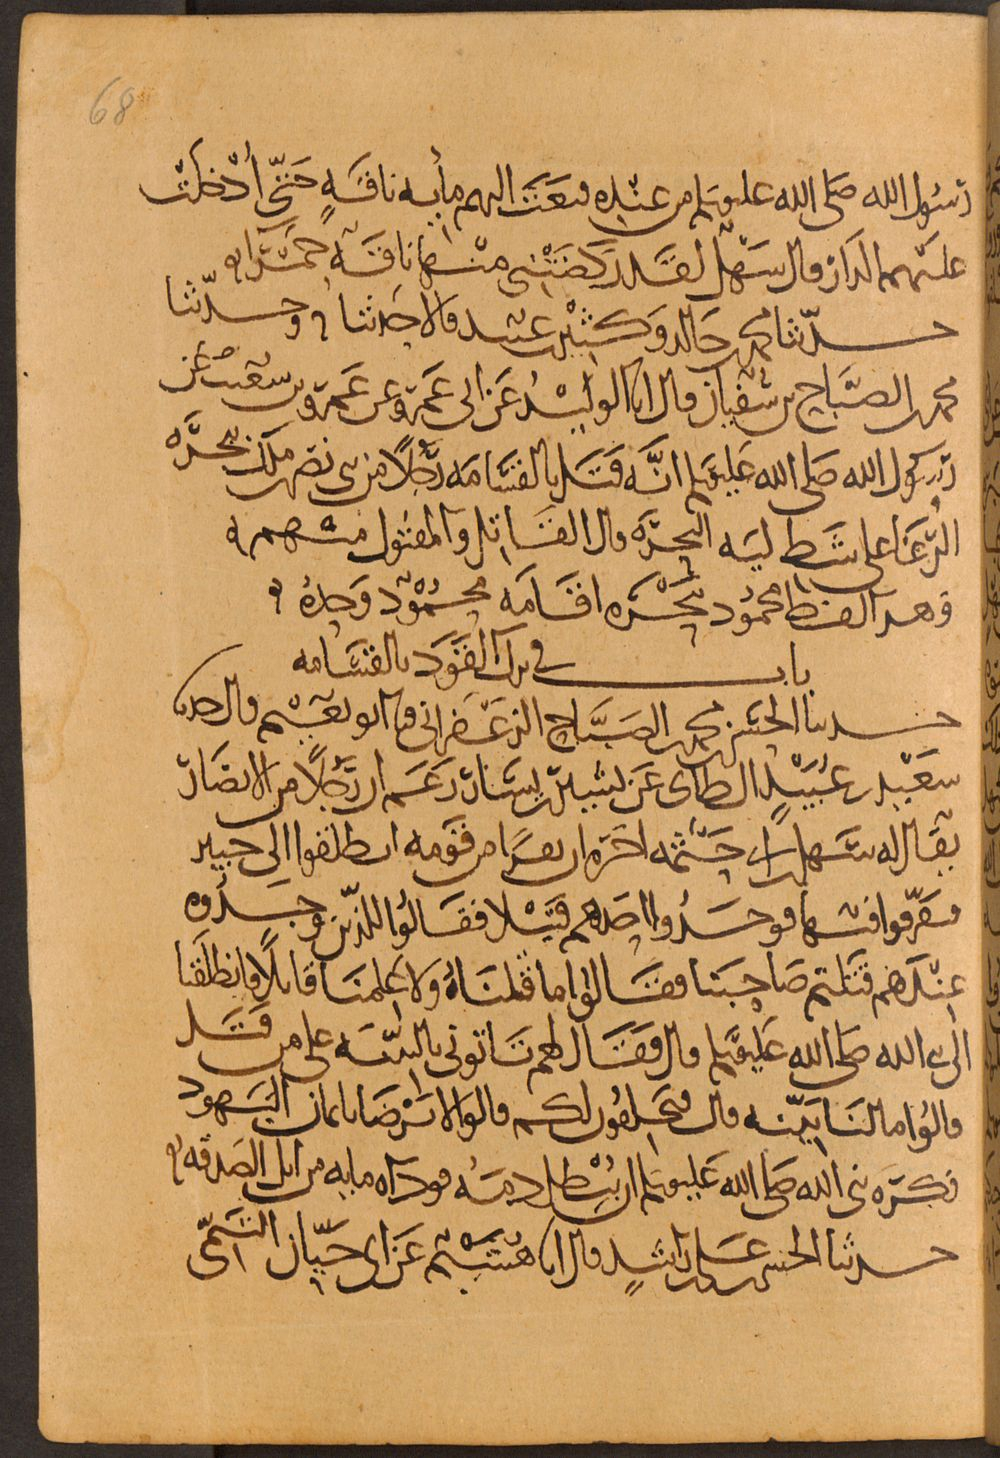 68
رسول الله صلى الله عليه وسلم من عنده فبعث اليهم مائه ناقةٍ حتّى أُدْخلَتْ
عليهم الدار قال سَهْلٌ لقد ركضتْني منها ناقةٌ حمرَاءُ
حدّثنا محمود بن خالد وكثير بن عبيد قالا حدثنا ح وحدّثنا
محمد بن الصّبّاح بن سفيان قال انا الوليدُ عن ابى عَمرو عن عَمرو بن شعيب عن
رسول الله صَلى الله عليه وسلم انَّه قتَل بالقسَامَه رَجُلاً من بنى نصر بن ملك ببحرَّه
الرُّغا على شَط ليَه البحرَّه قال القاتل والمقتول منهم
وهذا لفظ محمُود ببحْرَه اقامَه محمُود وَحدهُ
باب في ترك القَوَد بالقسَامه
حدثنا الحسن بن محمد بن الصَبَّاح الزعْفَرانى قال ابو نعَيْم قال حدثنا
سعَيْد بن عُبَيْدٍ الطائى عن بشير بن يسَار زعَم ان رَجُلاً من الانصَار
يقال له سَهل بن ابى حَثْمه اخبره ان نفرًا من قوْمه انطلقوا الى خيبر
فتفرّقوا فيها فوجَدُوا احَدهم قتيْلا فقالوُا للذّين وجَدُوه
عندَهم قتلتم صَاحبَنا فقالوُا ما قتلنَاهُ ولا عَلمنَا قاتلاً فانطلَقنا
الى نبى الله صلى الله عَليه وسلم قال فقَال لهم تَاتونى بالبيّنَه على من قَتَل
قالوُا ما لنَا بَيّنه قال فيحلفون لكم قالوا لا نرْضَا بايمان اليَهود
فكَره نبى الله صَلى الله عَليه وسلم ان يُبْطل دمَهُ فودَاه مايه من ابل الصَدقه
حدثنا الحسن بن عَلى بن رَاشدٍ قال انا هُشَيْم عَن ابى حَيّان التَيمّى